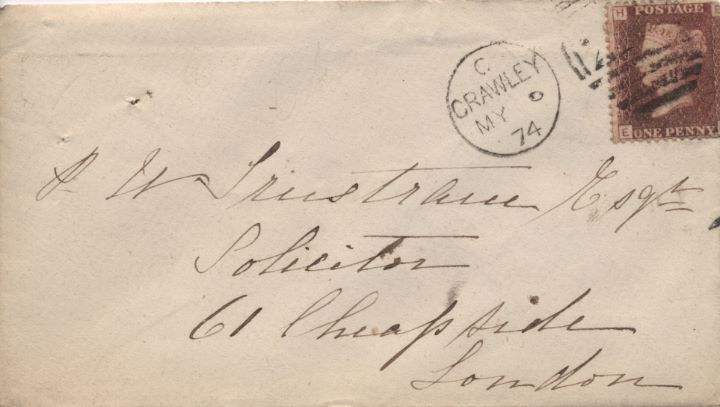 H POSTAGE E
C
CRAWLEY
MY 9
74
E ONE PENNY
W Tristram Esqre
Solicitor
61 Cheapside
London